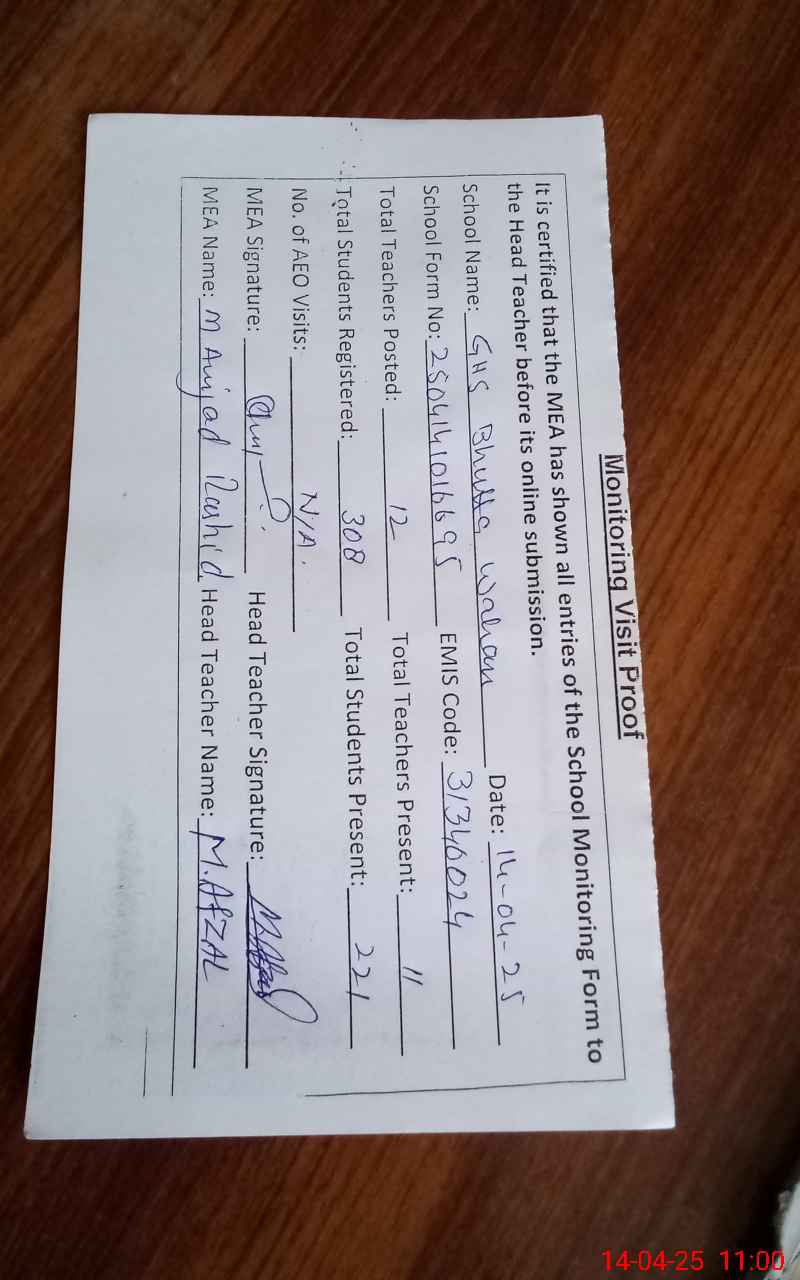 Monitoring Visit Proof
It is certified that the MEA has shown all entries of the School Monitoring Form to
the Head Teacher before its online submission.
School Name: GHS Bhutta Wahan Date: 14-04-25
School Form No: 2504141016695 EMIS Code: 31340024
Total Teachers Posted: 12 Total Teachers Present: 11
Total Students Registered: 308 Total Students Present: 221
No. of AEO Visits: N/A.
MEA Signature: Head Teacher Signature:
MEA Name: M Amjad Rashid Head Teacher Name: M. AFZAL
14-04-25 11:00